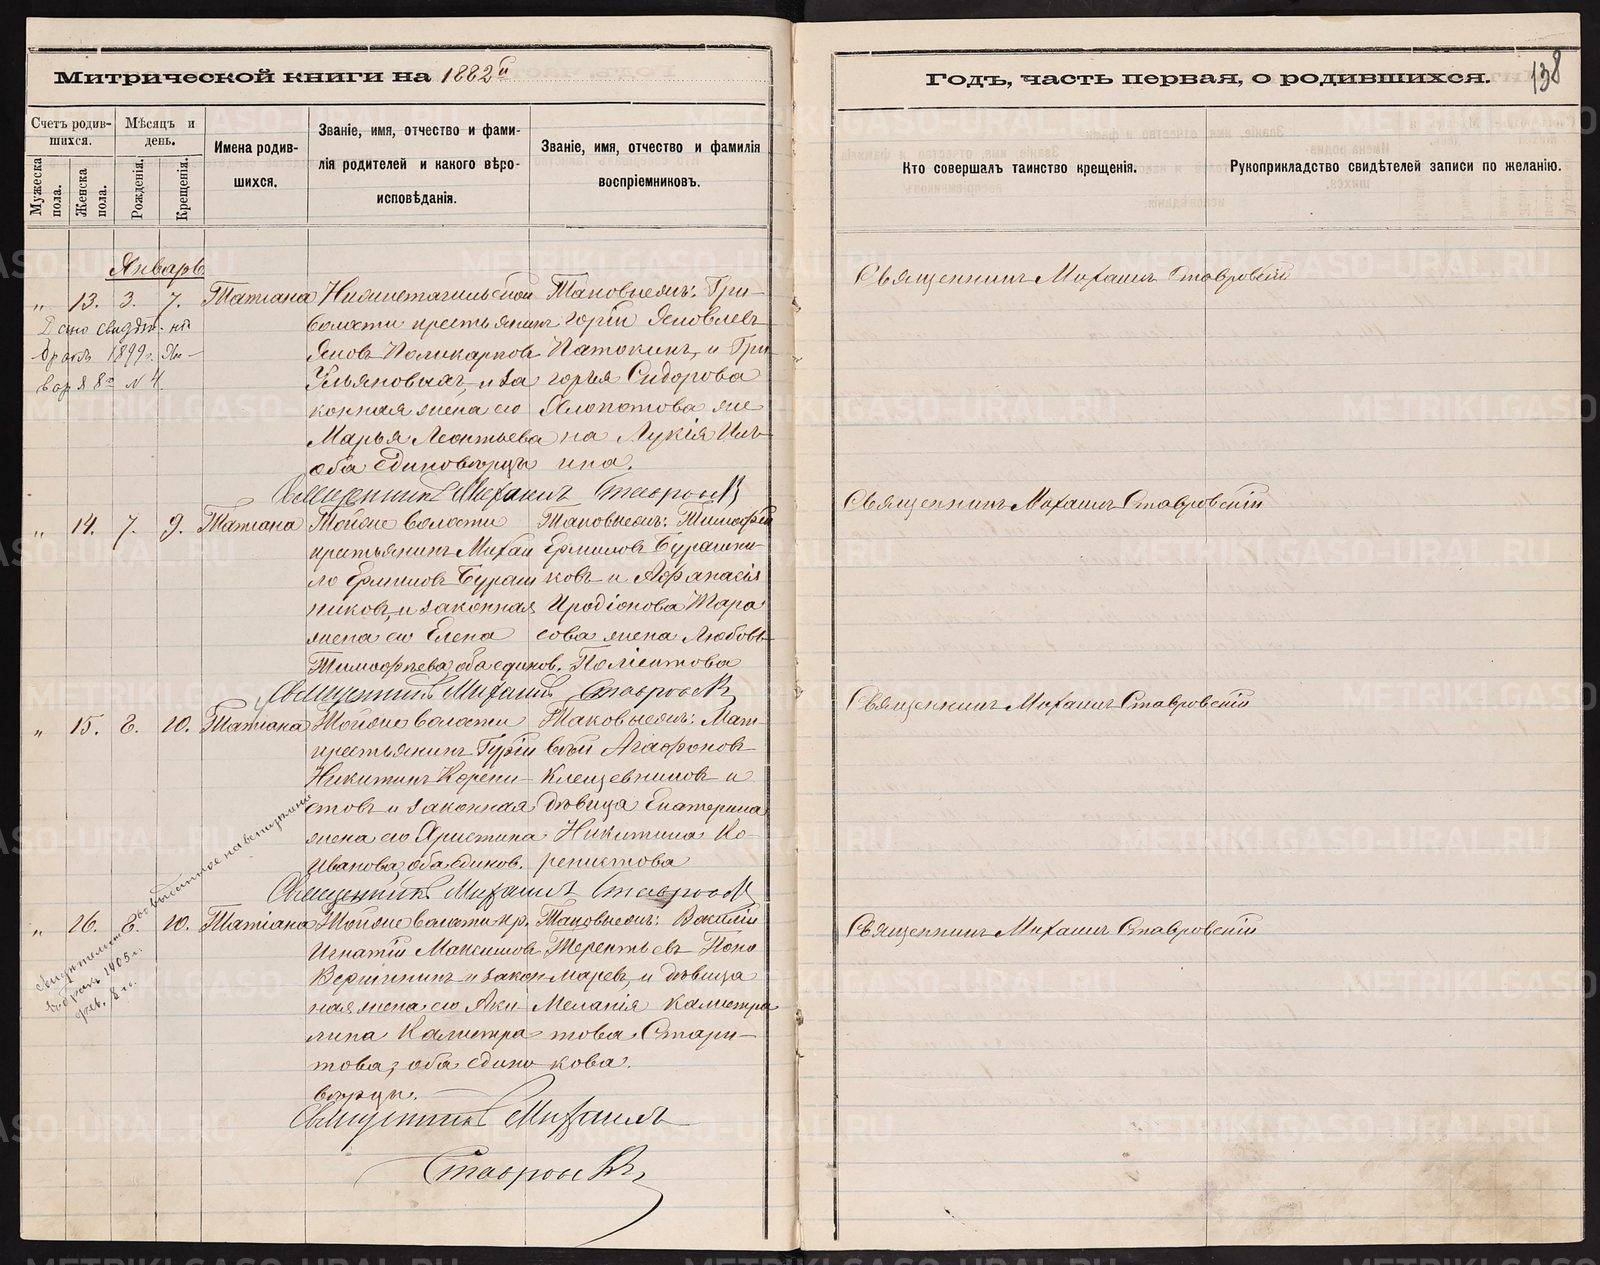 Митрической книги на 1882й
Годъ, часть первая, о родившихся.
138
Счетъ родив-
шихся.
Мужеска
пола.
Женска
пола.
Мѣсяцъ и
день.
Рожденія.
Крещенія.
Имена родив-
шихся.
Званіе, имя, отчество и фами-
лія родителей и какого вѣро-
исповѣданія.
Званіе, имя, отчество и фамилія
воспріемниковъ.
Кто совершалъ таинство крещенія.
Рукоприкладство свидѣтелей записи по желанію.
Январь
„ 13. 3. 7. Татіана
Дано свидѣт.
1899 г. Ян-
варя 8го № 4
волости крестьянинъ
Яковъ Поликарповъ
Ульяновыхъ, и за
конная жена его
Марья Леонтьева
оба единовѣрцы
Таковые жъ: Гри-
горій Яковлевъ
Патокинъ, и Гри
горья Сидорова
Хлопотова же
на Лукія
Священникъ Михаилъ Ставровскій
Священникъ Михаилъ Ставровскій
„ 14. 7. 9. Татіана
Тойже волости
крестьянинъ Михаи
ло Ермиловъ Бураш
никовъ, и законная
жена его Елена
Тимофѣева оба единов.
Таковые жъ: Тимофѣй
Ермиловъ Бурашни-
ковъ и Афанасія
Иродіонова Тара
сова жена Любовь
Священникъ Михаилъ Ставровскій
Священникъ Михаилъ Ставровскій
„ 15. 8. 10. Татіана
Тойже волости
крестьянинъ Гурій
Никитинъ Корепи-
стовъ и законная
жена его Христина
Иванова, оба единов.
Таковые жъ: Мат-
вѣй Агафоновъ
Клещевниковъ и
дѣвица Екатерина
Никитина Ко-
репистова
Священникъ Михаилъ Ставровскій
Священникъ Михаилъ Ставровскій
„ 16. 8. 10. Татіана
Тойже волости кр.
Игнатій Максимовъ
Вершининъ и закон
ная жена его Аки-
лина Калистра
това, оба едино
вѣрцы.
Таковые жъ: Василій
Терентьевъ Поно
маревъ, и дѣвица
Меланія Калистра
това Стари-
кова.
1905 г.
фев. 8
Священникъ Михаилъ
Ставровскій
Священникъ Михаилъ Ставровскій
METRIKI.GASO-URAL.RU